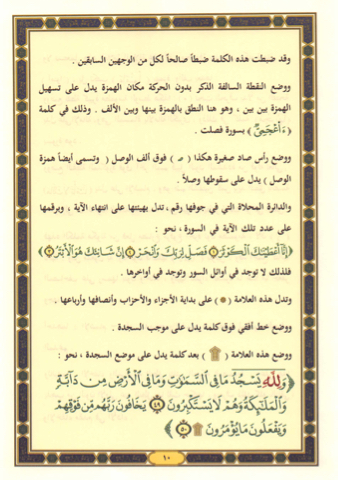 وقد ضبطت هذه الكلمة ضبطاً صالحاً لكل من الوجهين السابقين .
ووضع النقطة السالفة الذكر بدون الحركة مكان الهمزة يدل على تسهيل
الهمزة بين بين ، وهو هنا النطق بالهمزة بينها وبين الألف . وذلك في كلمة
﴿ ءَا۬عْجَمِىٌّ ﴾ بسورة فصلت .
ووضع رأس صاد صغيرة هكذا ( ص ) فوق ألف الوصل ( وتسمى أيضاً همزة
الوصل ) يدل على سقوطها وصلاً .
والدائرة المحلاة التي في جوفها رقم ، تدل بهيئتها على انتهاء الآية ، وبرقمها
على عدد تلك الآية في السورة ، نحو :
﴿ إِنَّآ أَعْطَيْنَٰكَ ٱلْكَوْثَرَ ١ فَصَلِّ لِرَبِّكَ وَٱنْحَرْ ٢ إِنَّ شَانِئَكَ هُوَ ٱلْأَبْتَرُ ٣ ﴾
فلذلك لا توجد في أوائل السور وتوجد في أواخرها .
وتدل هذه العلامة ( ۞ ) على بداية الأجزاء والأحزاب وأنصافها وأرباعها .
ووضع خط أفقي فوق كلمة يدل على موجب السجدة .
ووضع هذه العلامة ( ۩ ) بعد كلمة يدل على موضع السجدة ، نحو :
﴿ وَلِلَّهِ يَسْجُدُ مَا فِى ٱلسَّمَٰوَٰتِ وَمَا فِى ٱلْأَرْضِ مِن دَآبَّةٍ
وَٱلْمَلَٰٓئِكَةُ وَهُمْ لَا يَسْتَكْبِرُونَ ٤٩ يَخَافُونَ رَبَّهُم مِّن فَوْقِهِمْ
وَيَفْعَلُونَ مَا يُؤْمَرُونَ ۩ ٥٠ ﴾
١٠